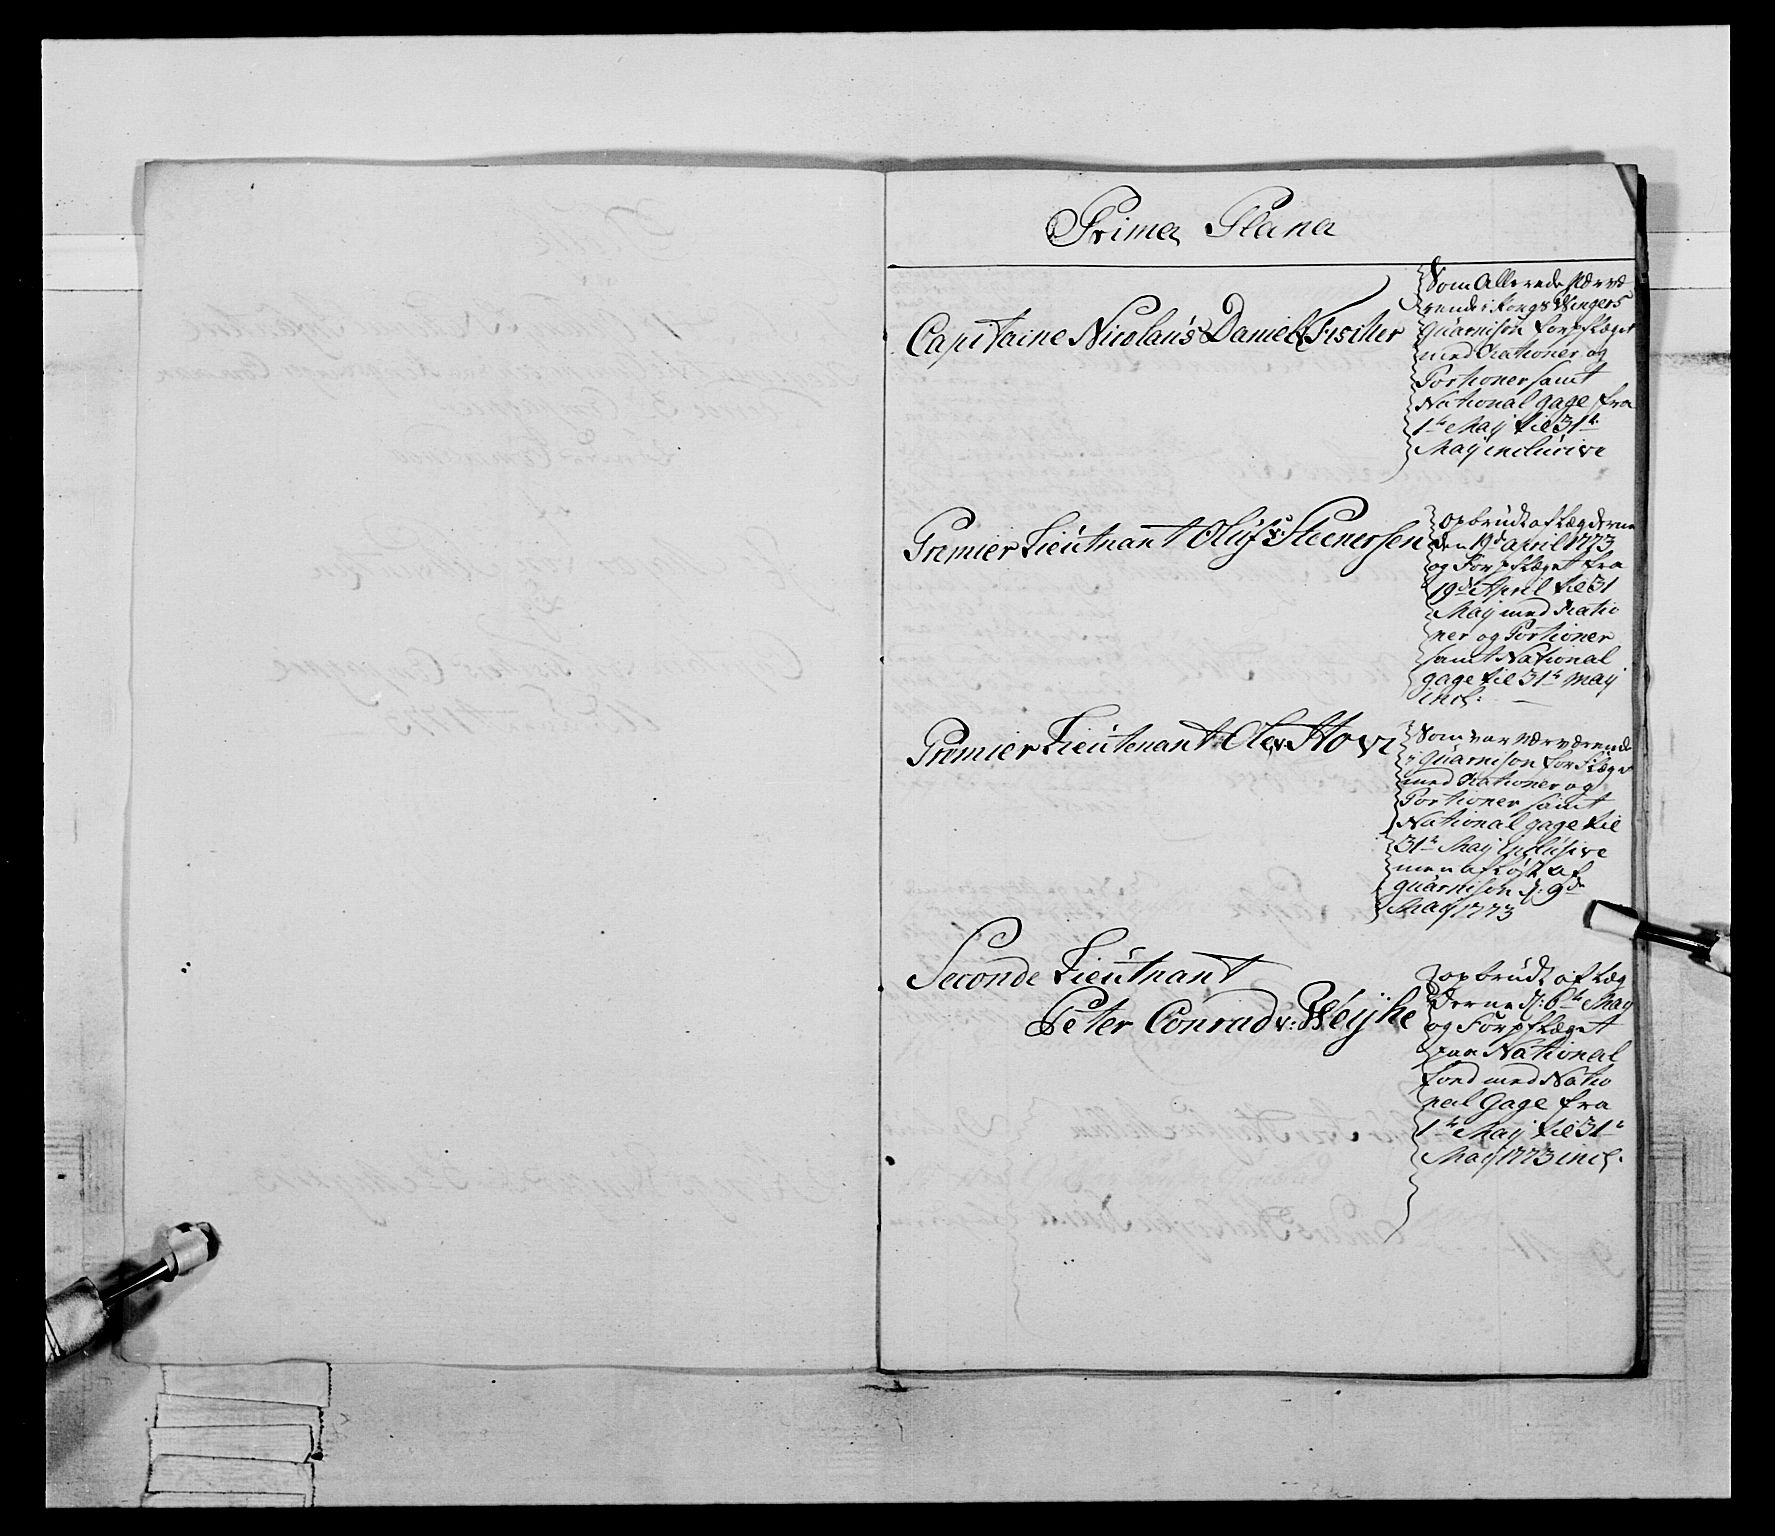 Prima Plana
Capitaine Nicolaus Daniel v: Fischer
Som Allerede nærvæ
rende i Kongs Wingers
Guarnison forpfleget
med Rationer og
Portioner samt
National gage fra
1te Maij til 31te
Maij inclusive
Premier Lieutnant Oluf v: Steenersen
opbrudt af Lægderne
den 19de April 1773
og Forpfleget fra
19de April til 31
Maij med Ratio
ner og Portioner
samt National
gage til 31te Maij
incl:
Premier Lieutenant Ole v: Hovi
Som var nærværende
i Guarnison forpfleget
med Rationer og
Portioner samt
National gage til
31te Maij inclusive
men afløst af
Guarnison d: 9de
Maij 1773
Seconde Lieutnant
Peter Conrad v: Weyhe
opbrudt af Læg
derne d: 6te Maij
og Forpfleget
paa National
fond med Natio
nal Gage fra
1te Maij til 31te
Maij 1773 incl: